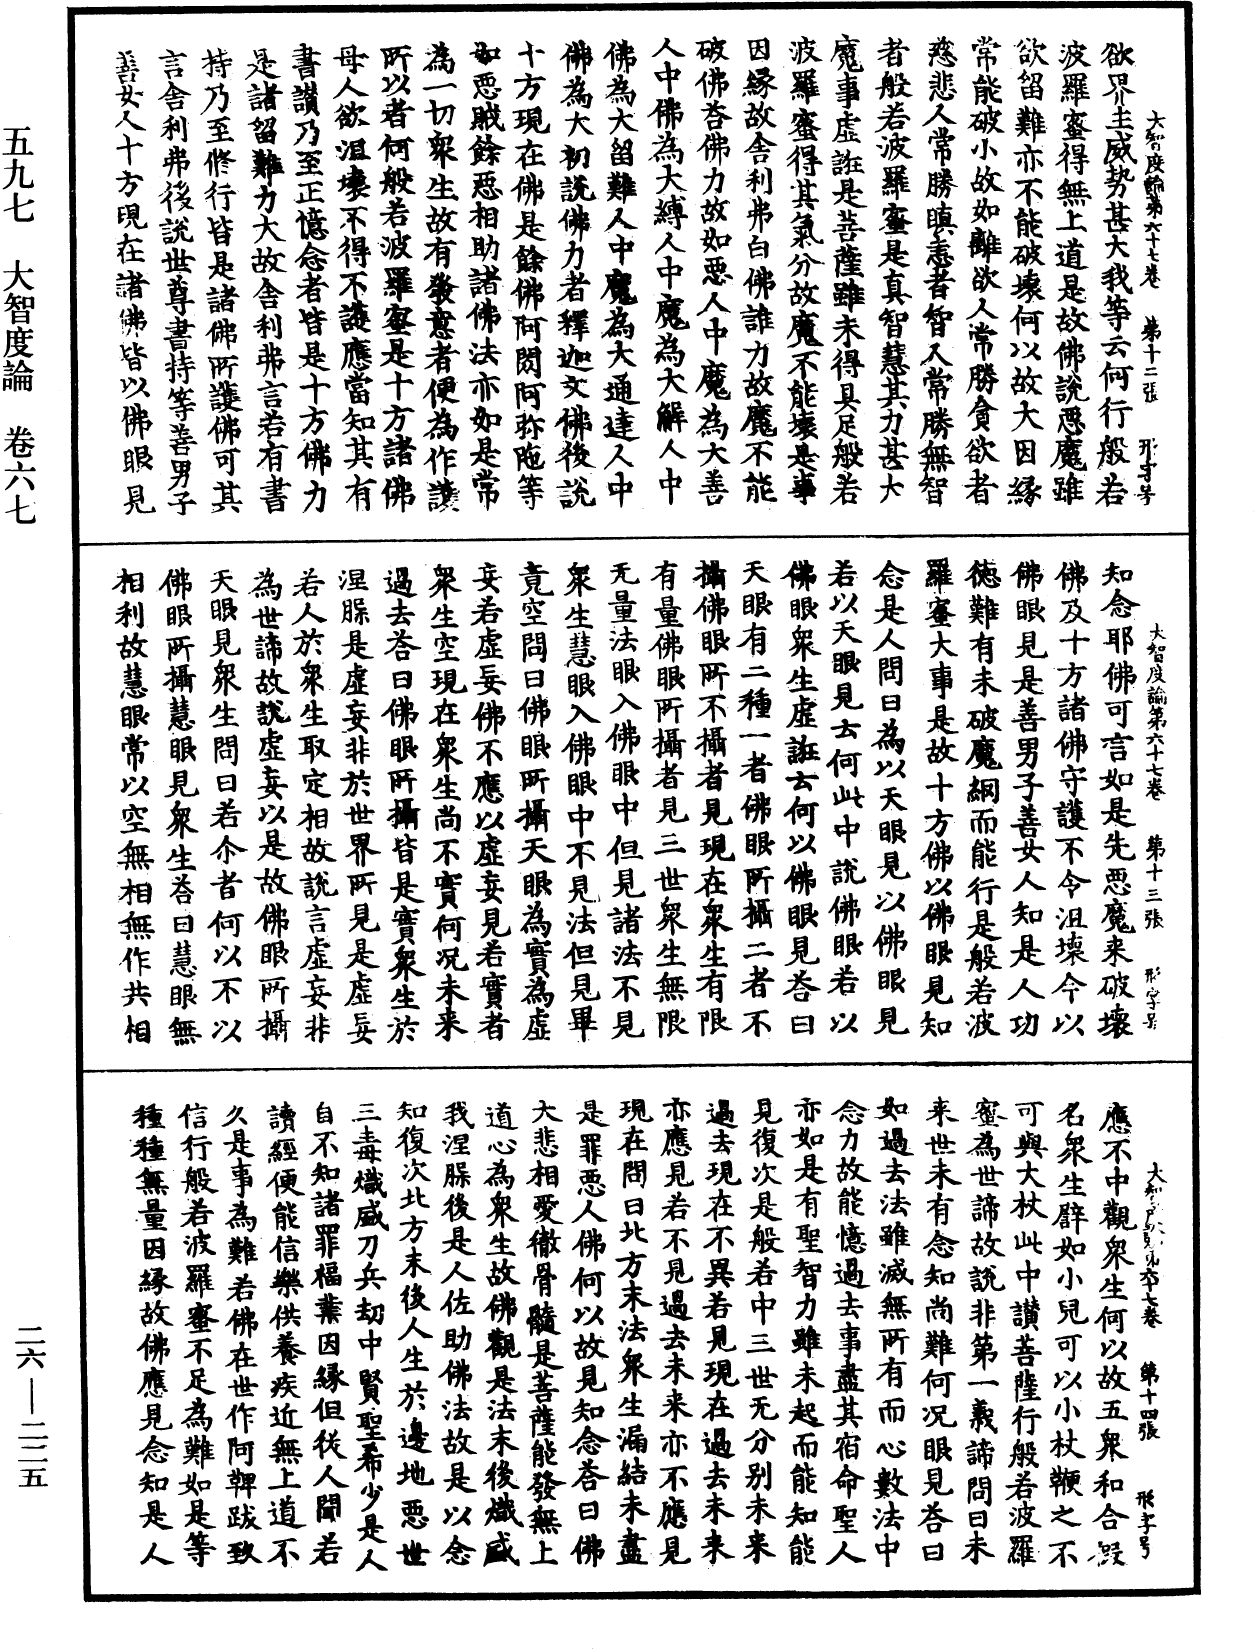 五九七　大智度論　卷六七
二六—二二五
大智度論第六十七卷　第十二張　形字号
欲界主威勢甚大我等云何行般若
波羅蜜得無上道是故佛說惡魔雖
欲留難亦不能破壞何以故大因緣
常能破小故如離欲人常勝貪欲者
慈悲人常勝瞋恚者智人常勝無智
者般若波羅蜜是真智慧其力甚大
魔事虛誑是菩薩雖未得具足般若
波羅蜜得其氣分故魔不能壞是事
因緣故舍利弗白佛誰力故魔不能
破佛荅佛力故如惡人中魔為大善
人中佛為大縛人中魔為大解人中
佛為大留難人中魔為大通達人中
佛為大初說佛力者釋迦文佛後說
十方現在佛是餘佛阿閦阿弥陁等
如惡賊餘惡相助諸佛法亦如是常
為一切衆生故有發意者便為作護
所以者何般若波羅蜜是十方諸佛
母人欲沮壞不得不護應當知其有
書讃乃至正憶念者皆是十方佛力
是諸留難力大故舍利弗言若有書
持乃至修行皆是諸佛所護佛可其
言舍利弗後說世尊書持等善男子
善女人十方現在諸佛皆以佛眼見
大智度論第六十七卷　第十三張　形字号
知念耶佛可言如是先惡魔来破壞
佛及十方諸佛守護不令沮壞今以
佛眼見是善男子善女人知是人功
德難有未破魔網而能行是般若波
羅蜜大事是故十方佛以佛眼見知
念是人問曰為以天眼見以佛眼見
若以天眼見云何此中說佛眼若以
佛眼衆生虛誑云何以佛眼見荅曰
天眼有二種一者佛眼所攝二者不
攝佛眼所不攝者見現在衆生有限
有量佛眼所攝者見三世衆生無限
无量法眼入佛眼中但見諸法不見
衆生慧眼入佛眼中不見法但見畢
竟空問曰佛眼所攝天眼為實為虛
妄若虛妄佛不應以虛妄見若實者
衆生空現在衆生尚不實何況未来
過去荅曰佛眼所攝皆是實衆生於
涅槃是虛妄非於世界所見是虛妄
若人於衆生取定相故說言虛妄非
為世諦故說虛妄以是故佛眼所攝
天眼見衆生問曰若尒者何以不以
佛眼所攝慧眼見衆生荅曰慧眼無
相利故慧眼常以空無相無作共相
卷　第十四張　形字号
應不中觀衆生何以故五衆和合假
名衆生譬如小兒可以小杖鞭之不
可與大杖此中讃菩薩行般若波羅
蜜為世諦故說非第一義諦問曰未
来世未有念知尚難何況眼見荅曰
如過去法雖滅無所有而心數法中
念力故能憶過去事盡其宿命聖人
亦如是有聖智力雖未起而能知能
見復次是般若中三世无分別未来
過去現在不異若見現在過去未来
亦應見若不見過去未来亦不應見
現在問曰北方末法衆生漏結未盡
是罪惡人佛何以故見知念荅曰佛
大悲相愛徹骨髓是菩薩能發無上
道心為衆生故佛觀是法末後熾盛
我涅槃後是人佐助佛法故是以念
知復次北方末後人生於邊地惡世
三毒熾盛刀兵劫中賢聖希少是人
自不知諸罪福業因緣但從人聞若
讀經便能信樂供養疾近無上道不
久是事為難若佛在世作阿鞞跋致
信行般若波羅蜜不足為難如是等
種種無量因緣故佛應見念知是人